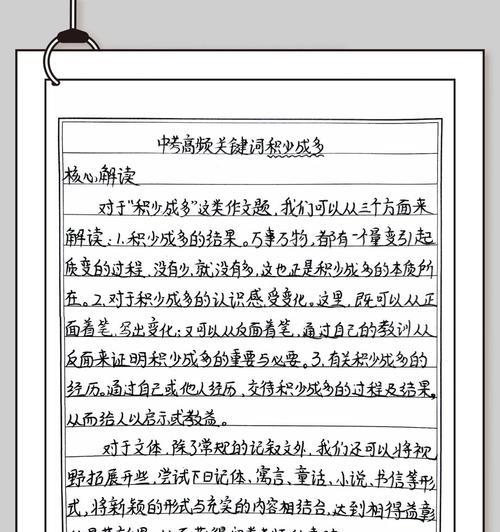 中考高频关键词积少成多
核心解读
对于“积少成多”这类作文题，我们可以从三个方面来
解读：1.积少成多的结果。万事万物，都有一个量变引起
质变的过程，没有少，就没有多，这也正是积少成多的本质所
在。2.对于积少成多的认识感受变化。这里，既可以从正
面着笔，写出变化；又可以从反面着笔，通过自己的教训从
反面来证明积少成多的重要与必要。3.有关积少成多的
经历。通过自己或他人经历，交待积少成多的过程及结果，
从而给人以启示或教益。
对于文体，除了常规的记叙文外，我们还可以将视
野拓展开些，尝试下日记体、寓言、童话、小说、书信等形
式，将新颖的形式与充实的内容相结合，达到相得益彰